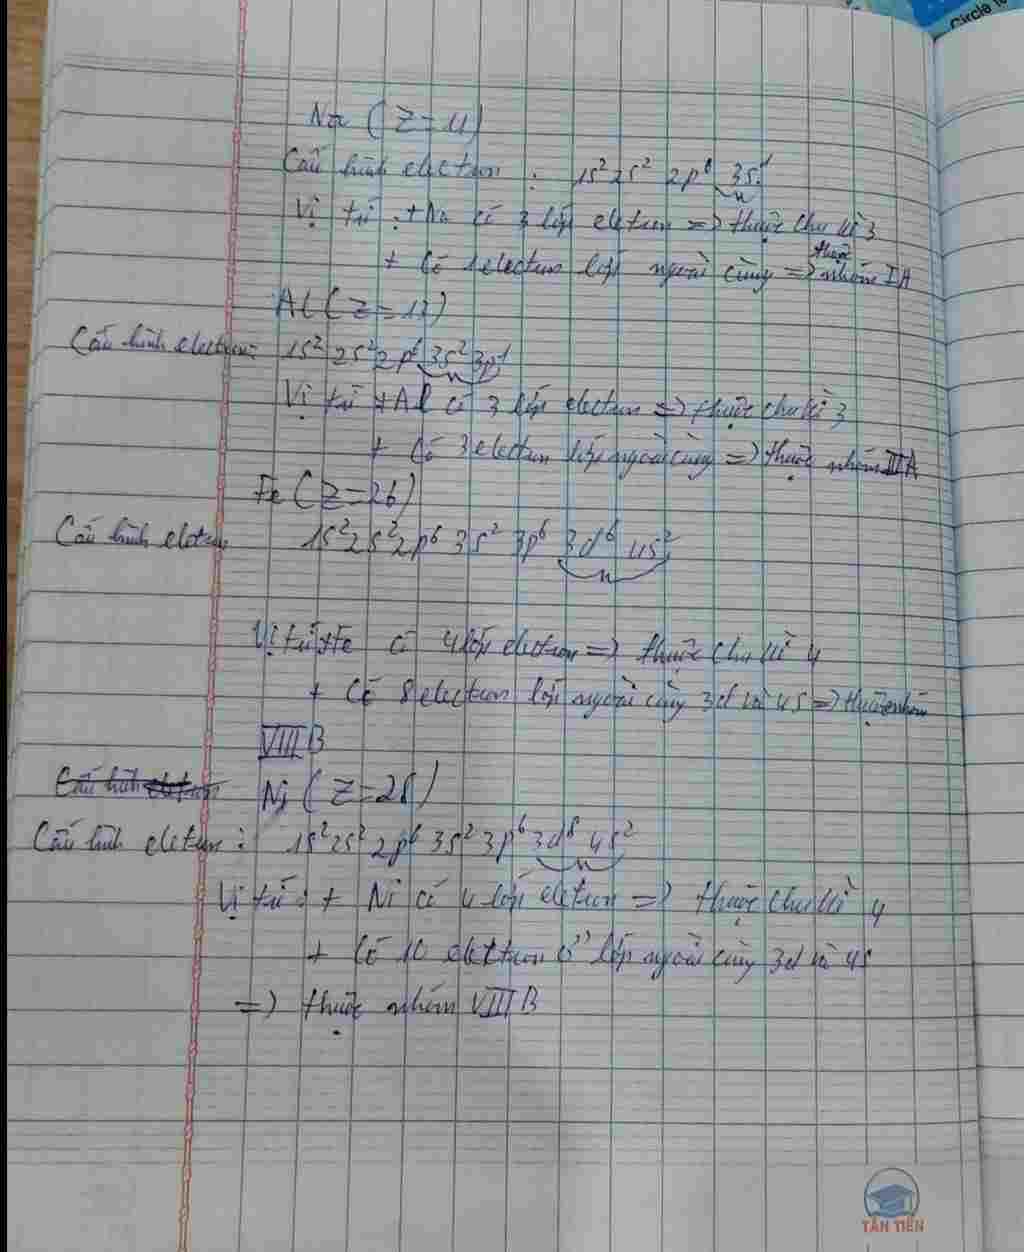 Circle K
Na (Z=11)
Cấu hình electron : 1s² 2s² 2p⁶ 3s¹
Vị trí : + Na có 3 lớp eletron => thuộc chu kì 3
+ Có 1 electron lớp ngoài cùng => thuộc nhóm IA
Al (Z=13)
Cấu hình electron: 1s² 2s² 2p⁶ 3s² 3p¹
Vị trí + Al có 3 lớp electron => thuộc chu kì 3
+ Có 3 electron lớp ngoài cùng => thuộc nhóm IIIA
Fe (Z=26)
Cấu hình eletron 1s² 2s² 2p⁶ 3s² 3p⁶ 3d⁶ 4s²
Vị trí + Fe có 4 lớp electron => thuộc chu kì 4
+ Có 8 electron lớp ngoài cùng 3d và 4s => thuộc nhóm
VIIIB
Ni (Z=28)
Cấu hình eletron : 1s² 2s² 2p⁶ 3s² 3p⁶ 3d⁸ 4s²
Vị trí : + Ni có 4 lớp eletron => thuộc chu kì 4
+ Có 10 electron ở lớp ngoài cùng 3d và 4s
=> thuộc nhóm VIIIB
TÂN TIẾN